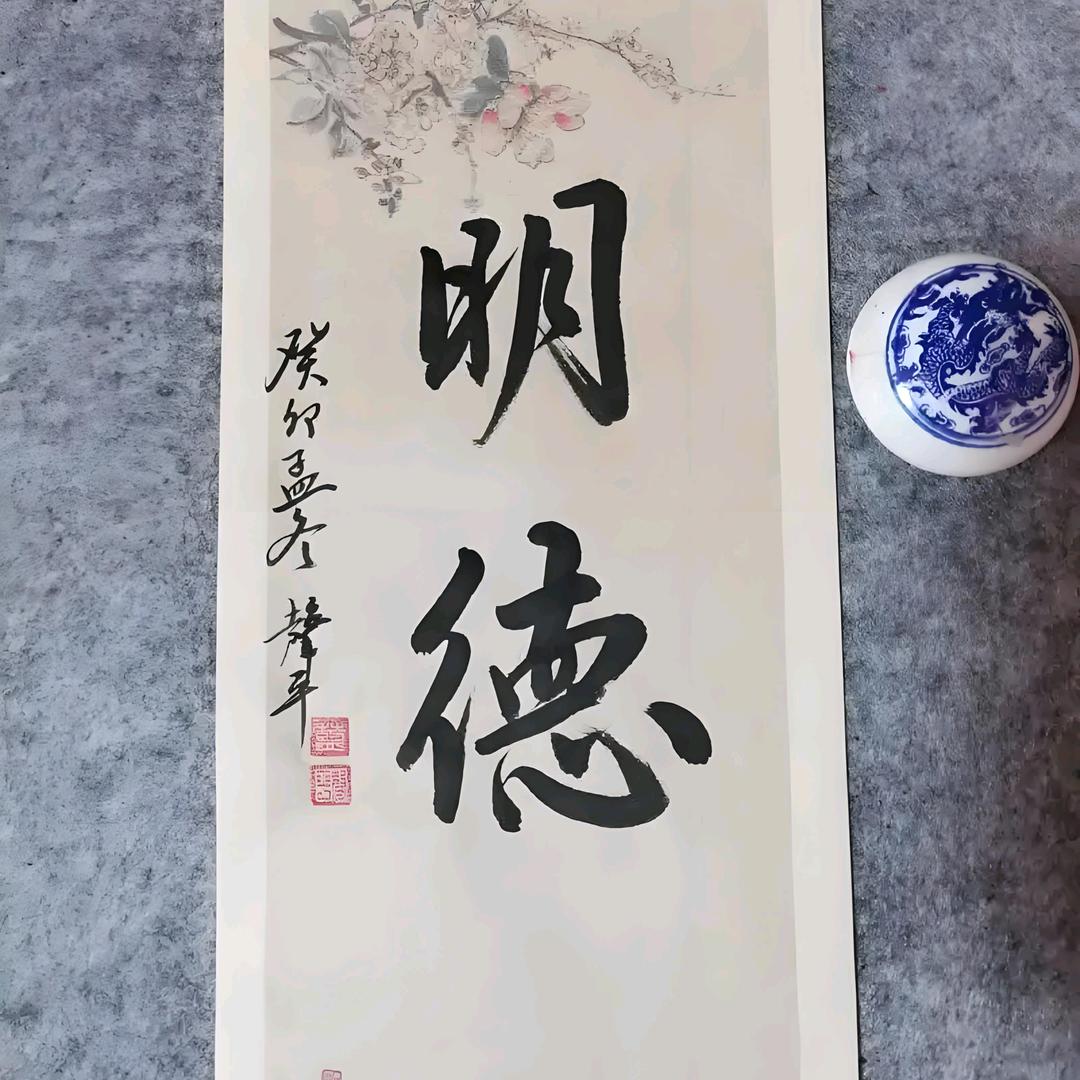 明德
癸卯孟冬 声平